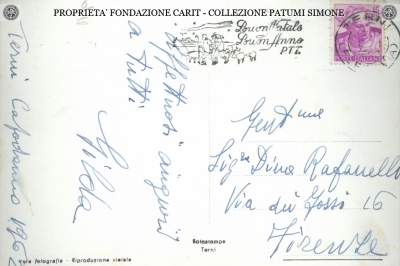 PROPRIETA' FONDAZIONE CARIT - COLLEZIONE PATUMI SIMONE
Terni Capodanno 1962
Affettuosi auguri
a tutti
Gilda
Vera fotografia - Riproduzione vietata
Rotostampa
Terni
Buon Natale
Buon Anno
PTT.
TERNI
POSTE ITALIANE
Gent.me
Sig.ne Dina Rafanelli
Via dei Fossi 16
Firenze